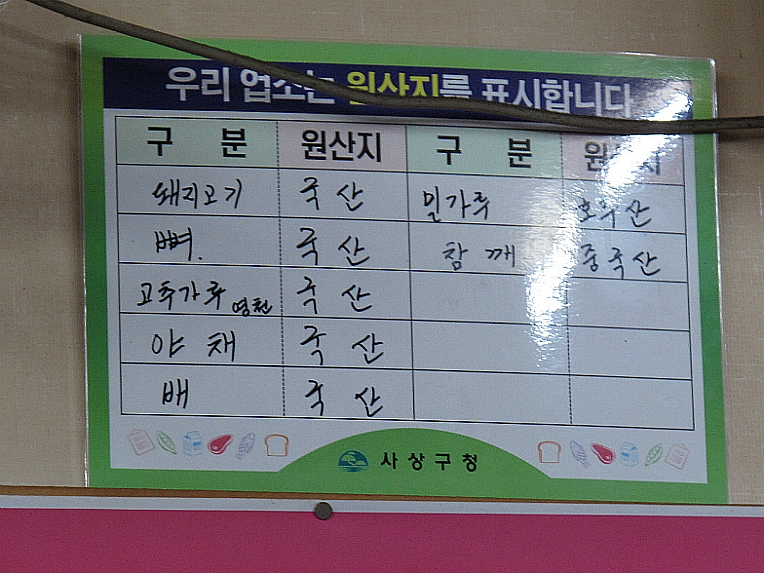 우리 업소는 원산지를 표시합니다
구 분 원산지 구 분 원산지
돼지고기 국산 밀가루 호주산
뼈. 국산 참깨 중국산
고추가루 영천 국산
야채 국산
배 국산
사상구청